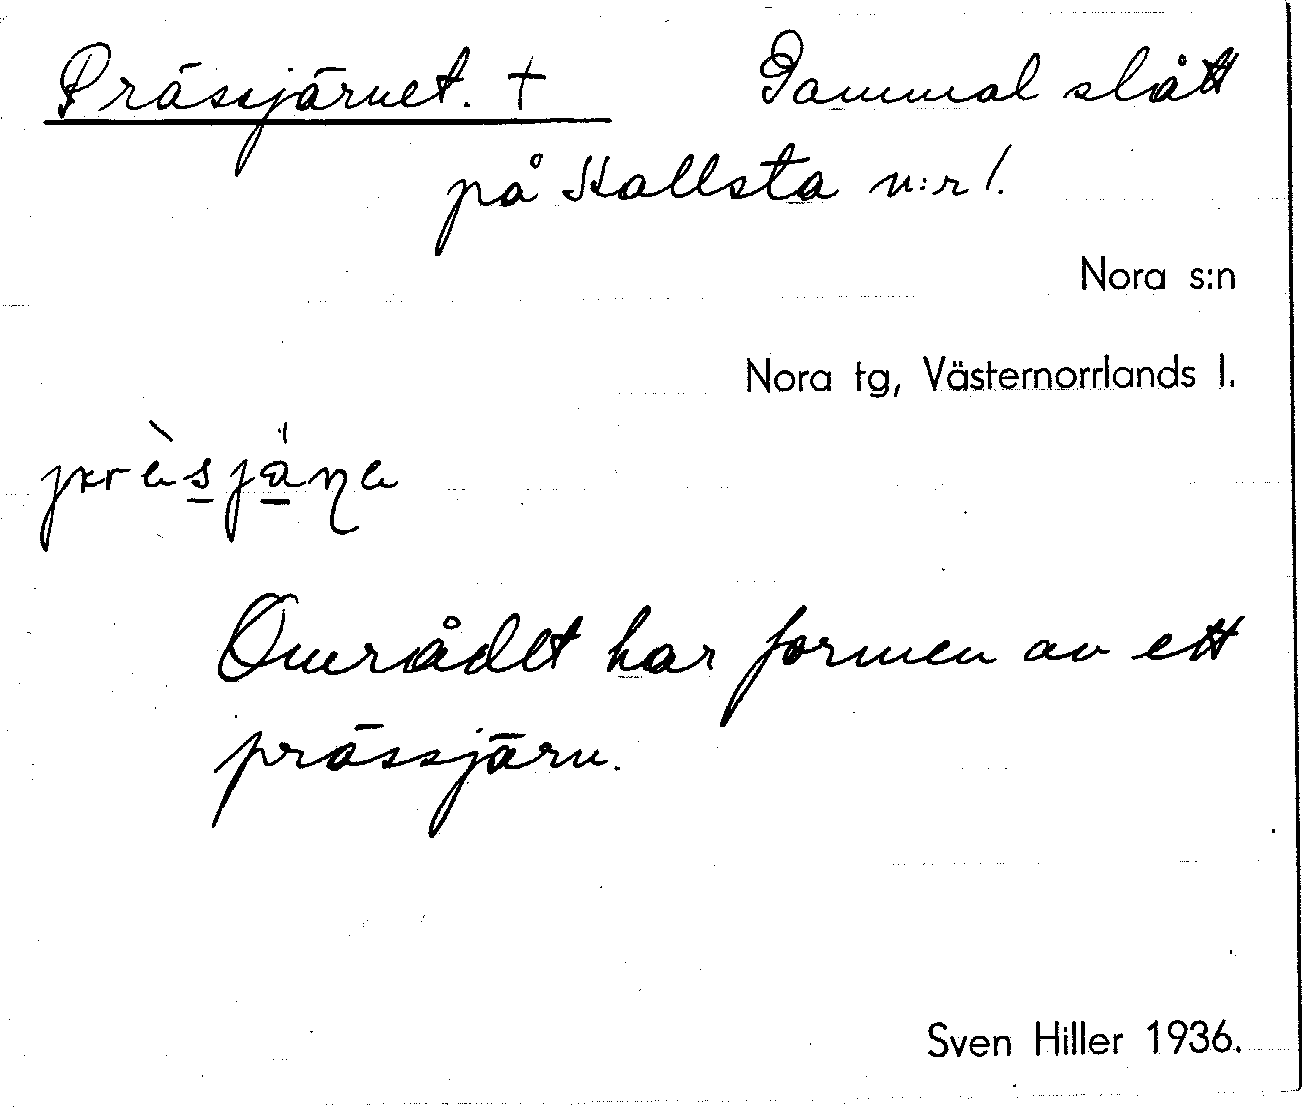 Prässjärnet. † Gammal slått
på Hallsta n:r 1.
Nora s:n
Nora tg, Västernorrlands l.
Området har formen av ett
prässjärn.
Sven Hiller 1936.